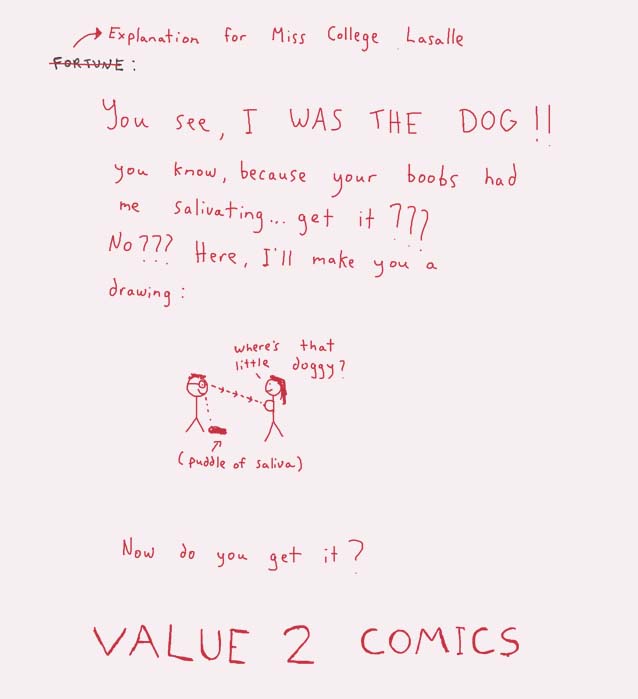 Explanation for Miss College Lasalle
FORTUNE:
You see, I WAS THE DOG!!
you know, because your boobs had
me salivating... get it???
No??? Here, I'll make you a
drawing:
where's that
little doggy?
(puddle of saliva)
Now do you get it?
VALUE 2 COMICS